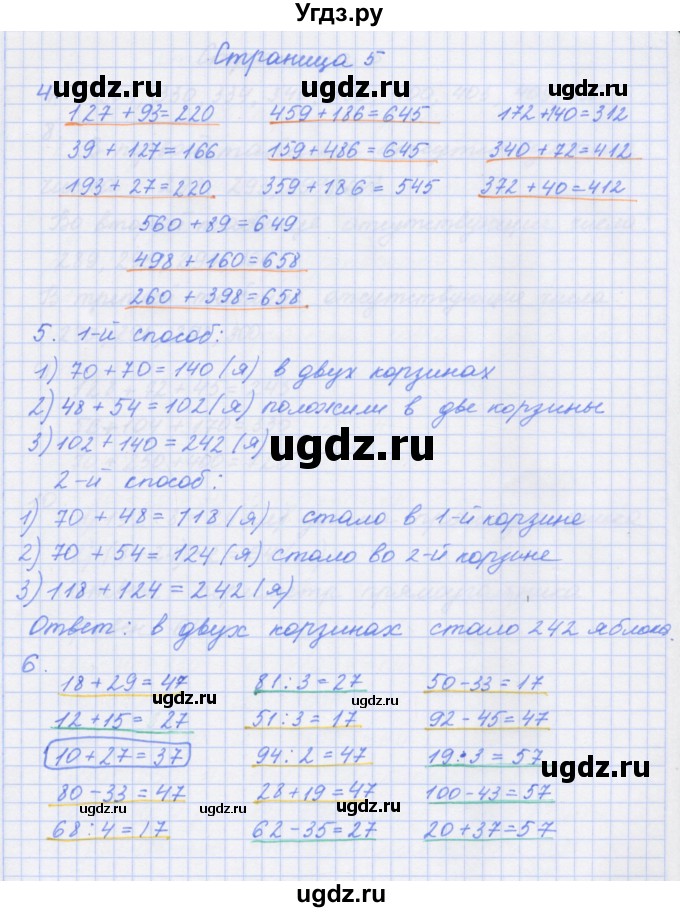 Угдз.ру
Страница 5
ugdz.ru ugdz.ru ugdz.ru
4
127 + 93 = 220 459 + 186 = 645 172 + 140 = 312
39 + 127 = 166 159 + 486 = 645 340 + 72 = 412
193 + 27 = 220 359 + 186 = 545 372 + 40 = 412
560 + 89 = 649
498 + 160 = 658
260 + 398 = 658
5. 1-й способ:
1) 70 + 70 = 140 (я) в двух корзинах
2) 48 + 54 = 102 (я) положили в две корзины
3) 102 + 140 = 242 (я)
ugdz.ru
2-й способ:
1) 70 + 48 = 118 (я) стало в 1-й корзине
2) 70 + 54 = 124 (я) стало во 2-й корзине
3) 118 + 124 = 242 (я)
Ответ: в двух корзинах стало 242 яблока.
6.
18 + 29 = 47 81 : 3 = 27 50 - 33 = 17
ugdz.ru ugdz.ru ugdz.ru
12 + 15 = 27 51 : 3 = 17 92 - 45 = 47
10 + 27 = 37 94 : 2 = 47 19 · 3 = 57
ugdz.ru
80 - 33 = 47 28 + 19 = 47 100 - 43 = 57
ugdz.ru ugdz.ru ugdz.ru
68 : 4 = 17 62 - 35 = 27 20 + 37 = 57
ugdz.ru ugdz.ru
ugdz.ru